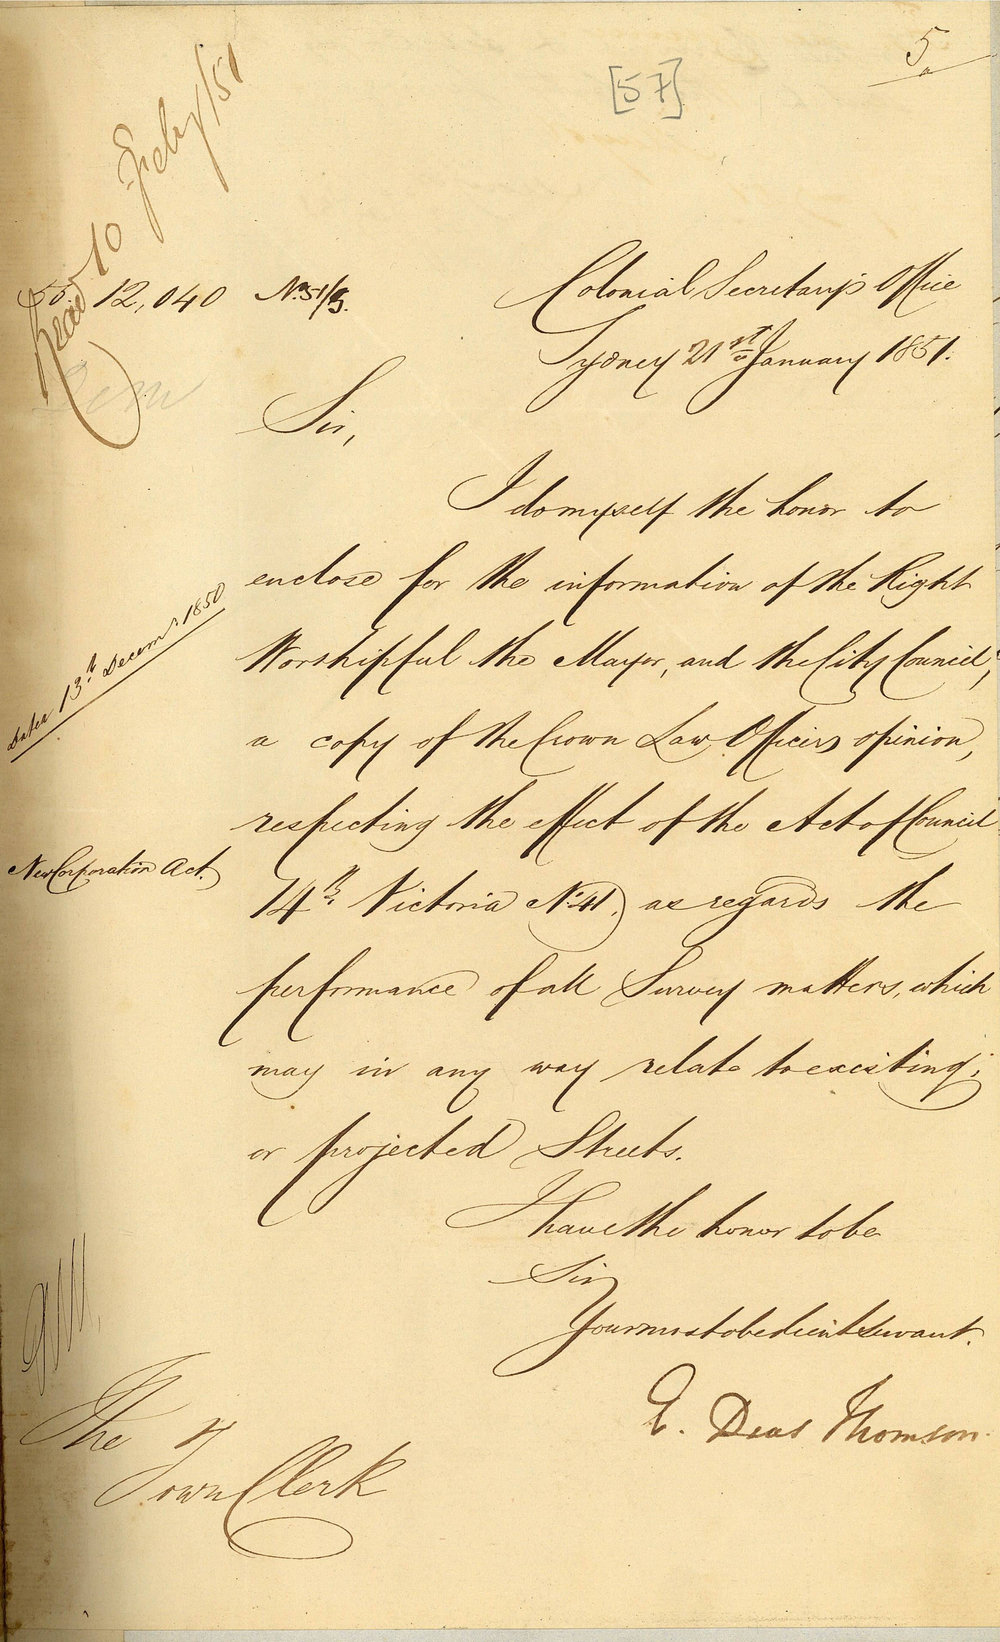 5
[57]
10 Feby/51
12,040 No. 51/3.
Colonial Secretary's Office
Sydney 21st January 1851.
Sir,
I do myself the honor to
enclose for the information of the Right
Dated 13th Decemr. 1850
Worshipful the Mayor, and the City Council,
a copy of the Crown Law Officers opinion,
respecting the effect of the Act of Council
New Corporation Act.
14th. Victoria No. 41, as regards the
performance of all Survey matters, which
may in any way relate to existing,
or projected Streets.
I have the honor to be
Sir
Your most obedient Servant.
E. Deas Thomson
The
Town Clerk